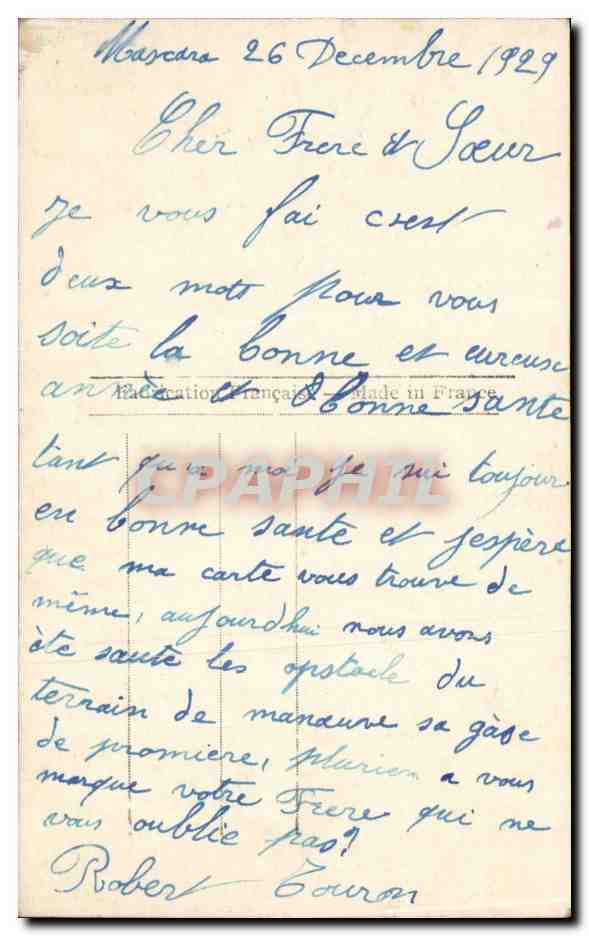 Mascara 26 Decembre 1929
Cher Frere et Sœur
Je vous fai csest
deux mott pour vous
soite la bonne et eureuse
Fabrication Française — Made in France
année et bonne sante
CPAPHIL
tant qu'a moi je sui toujour
en bonne sante et jespère
que ma carte vous trouve de
même, aujourdhui nous avons
ète sauté les opstacle du
terrain de manœuvre sa gàse
de promiere, a vous
marque votre Frere qui ne
vous oublie pas!
Robert Touron